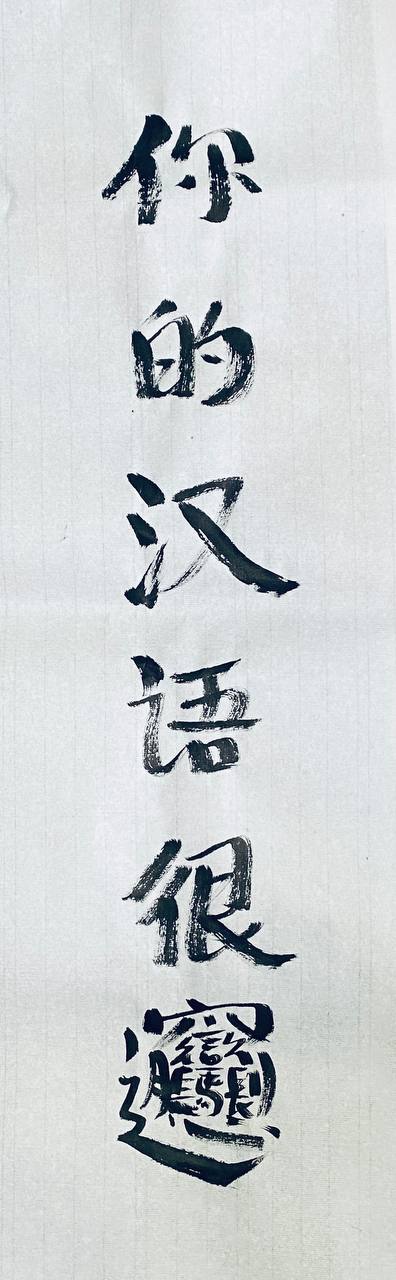 你的汉语很𰻞